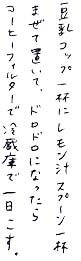 豆乳コップ一杯にレモン汁スプーン一杯
まぜて置いて、ドロドロになったら
コーヒーフィルターで冷蔵庫で一日こす。